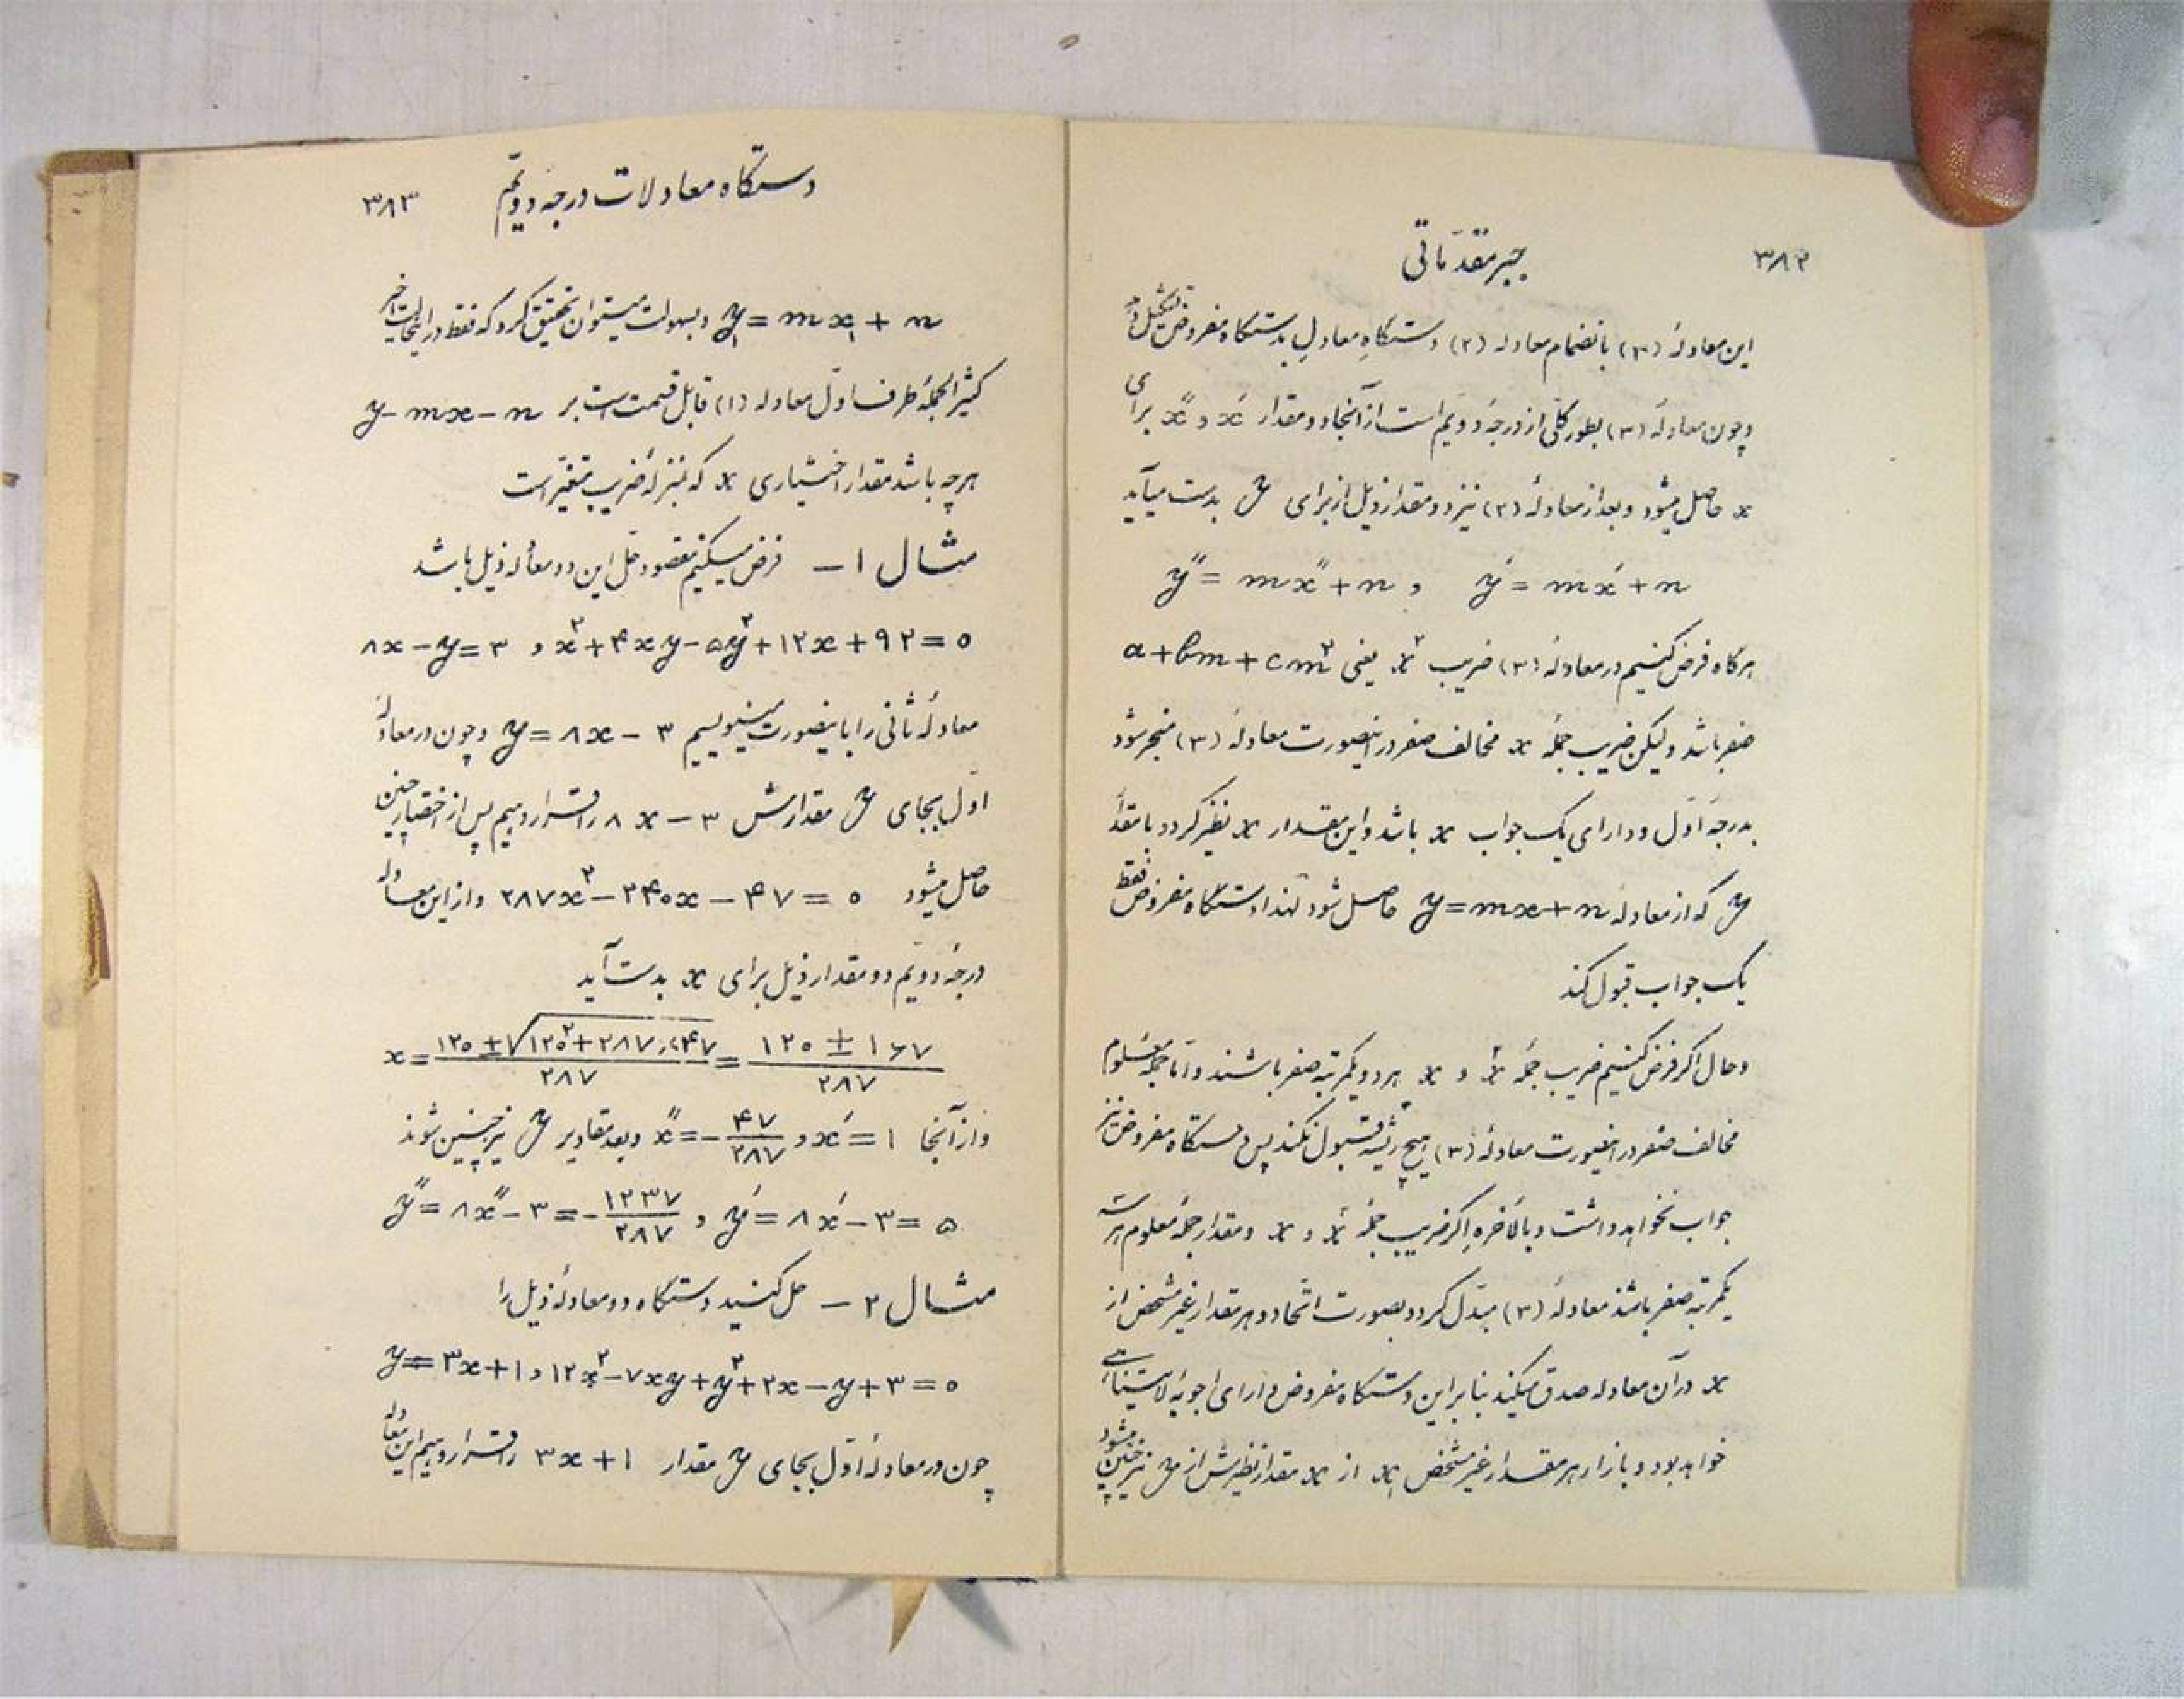 ۳۸۲
جبر مقدماتی
این معادلهٔ (۳) بانضمام معادله (۲) دستگاه معادلِ بدستگاه مفروض تشکیل دهد
و چون معادلهٔ (۳) بطور کلی از درجهٔ دویّم است از آنجا دو مقدار x′ و x″ برای
x حاصل میشود و بعد از معادلهٔ (۲) نیز دو مقدار ذیل از برای y بدست میآید
y″ = mx″ + n و y′ = mx′ + n
هرگاه فرض کنیم در معادلهٔ (۳) ضریب x² یعنی a + bm + cm²
صفر باشد ولیکن ضریب جملهٔ x مخالف صفر در اینصورت معادلهٔ (۳) منجر شود
بدرجهٔ اوّل و دارای یک جواب x باشد و این مقدار x نظیر گردد با مقدار
y که از معادلهٔ y = mx + n حاصل شود لهذا دستگاه مفروض فقط
یک جواب قبول کند
و حال اگر فرض کنیم ضریب جملهٔ x² و x هر دو یکمرتبه صفر باشند و امّا جملهٔ معلوم
مخالف صفر در اینصورت معادلهٔ (۳) هیچ ریشه قبول نکند پس دستگاه مفروض نیز
جواب نخواهد داشت و بالأخره اگر ضریب جملهٔ x² و x و مقدار جملهٔ معلوم هر سه
یکمرتبه صفر باشند معادلهٔ (۳) مبدّل گردد بصورت اتّحاد و هر مقدار غیر مشخص از
x در آن معادله صدق میکند بنابراین دستگاه مفروض دارای اجوبهٔ لایتناهی
خواهد بود و بازاء هر مقدار غیر مشخص x₁ از x مقدار نظیرش از y نیز چنین میشود
دستگاه معادلات درجهٔ دویّم ۳۸۳
y₁ = mx₁ + n و بسهولت میتوان تحقیق کرد که فقط در اینحالت اخیر
کثیرالجملهٔ طرف اوّل معادله (۱) قابل قسمت است بر y − mx − n
هرچه باشد مقدار اختیاری x که بمنزلهٔ ضریب متغیّر است
مثال ۱ – فرض میکنیم مقصود حل این دو معادلهٔ ذیل باشد
۸x − y = ۳ و x² + ۴xy − ۵y² + ۱۲x + ۹۲ = ۰
معادلهٔ ثانی را باینصورت مینویسیم y = ۸x − ۳ و چون در معادلهٔ
اوّل بجای y مقدارش ۸x − ۳ را قرار دهیم پس از اختصار چنین
حاصل میشود ۲۸۷x² − ۲۴۰x − ۴۷ = ۰ و از این معادله
درجهٔ دویّم دو مقدار ذیل برای x بدست آید
x = (۱۲۰ ± √(۱۲۰² + ۲۸۷٫۴۷))/۲۸۷ = (۱۲۰ ± ۱۶۷)/۲۸۷
و از آنجا x″ = −۴۷/۲۸۷ و x′ = ۱ و بعد مقادیر y نیز چنین شوند
y″ = ۸x″ − ۳ = −۱۲۳۷/۲۸۷ و y′ = ۸x′ − ۳ = ۵
مثال ۲ – حل کنید دستگاه دو معادلهٔ ذیل را
y = ۳x + ۱ و ۱۲x² − ۷xy + y² + ۲x − y + ۳ = ۰
چون در معادلهٔ اوّل بجای y مقدار ۳x + ۱ را قرار دهیم این معادله